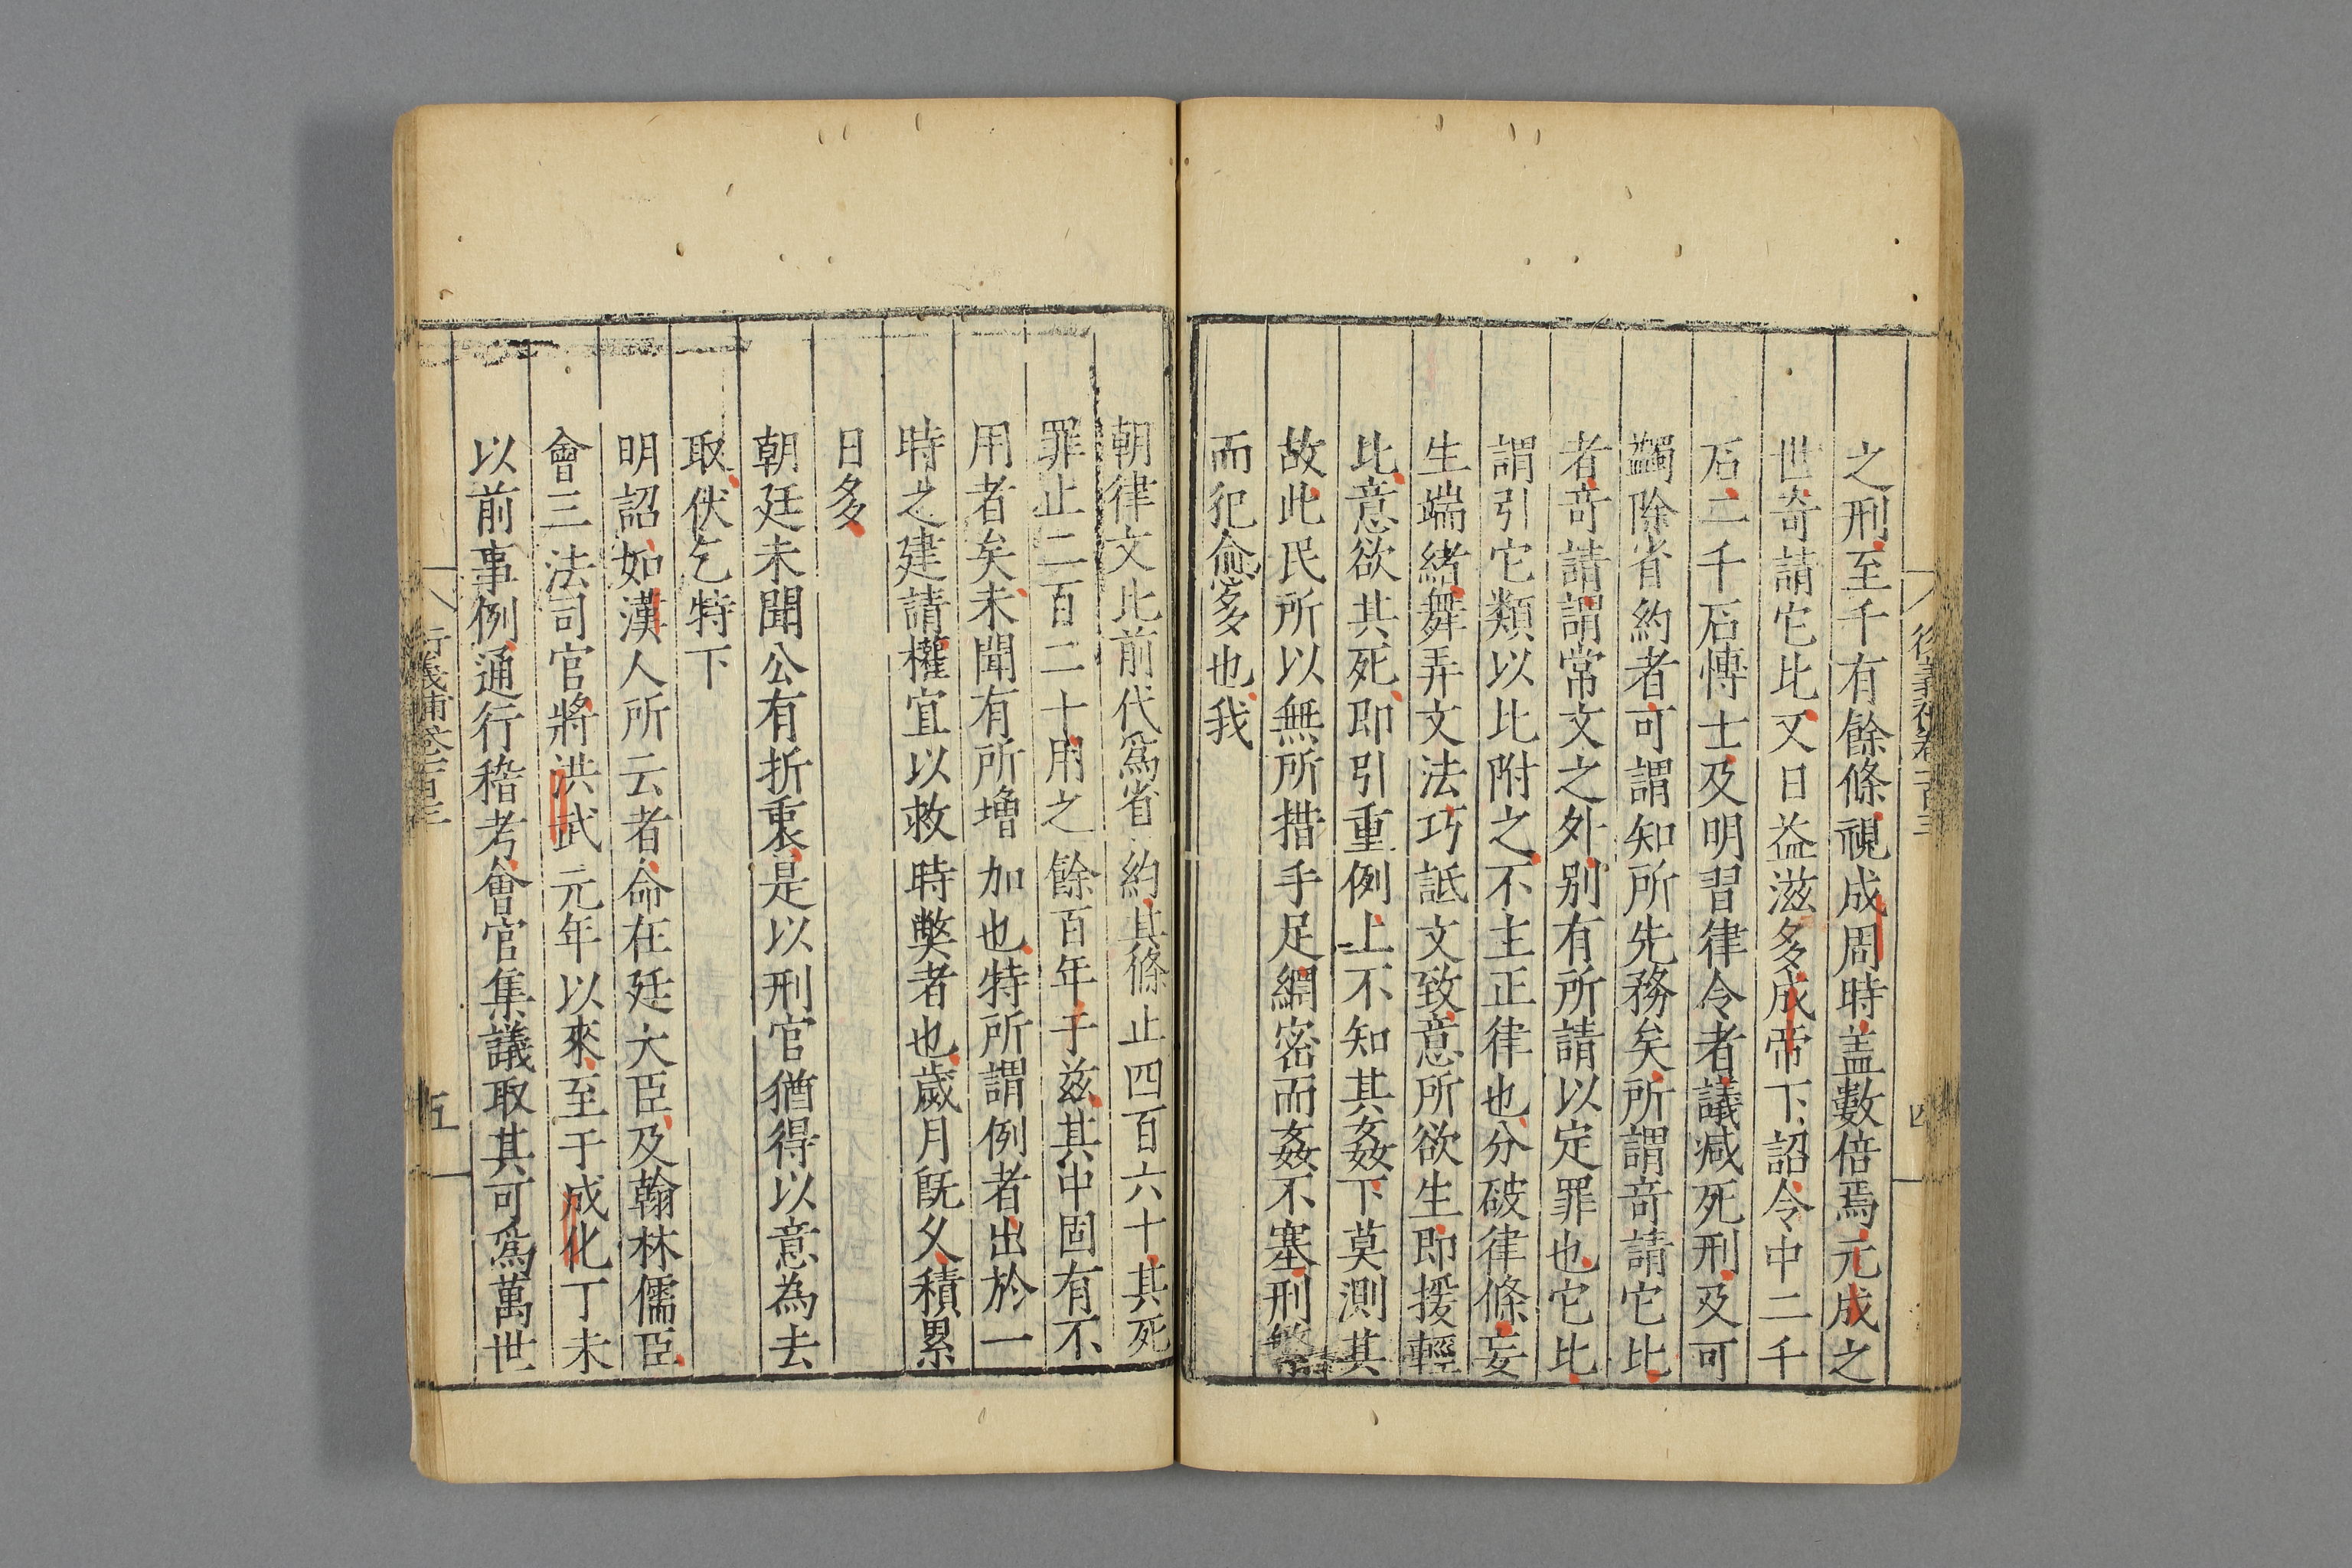 之刑至千有餘條視成周時盖數倍焉元成之
世奇請它比又日益滋多成帝下詔令中二千
石二千石博士及明習律令者議减死刑及可
蠲除省約者可謂知所先務矣所謂奇請它比
者奇請謂常文之外别有所請以定罪也它比
謂引它類以比附之不主正律也分破律條妄
生端緒舞弄文法巧詆文致意所欲生即援輕
比意欲其死即引重例上不知其姦下莫測其
故此民所以無所措手足網密而姦不塞刑繁
而犯愈多也我
朝律文比前代爲省約其條止四百六十其死
罪止二百二十用之餘百年于兹其中固有不
用者矣未聞有所增加也特所謂例者出於一
時之建請權宜以救時弊者也歲月旣久積累
日多
朝廷未聞公有折衷是以刑官猶得以意為去
取伏乞特下
明詔如漢人所云者命在廷大臣及翰林儒臣
會三法司官將洪武元年以來至于成化丁未
以前事例通行稽考會官集議取其可爲萬世
五